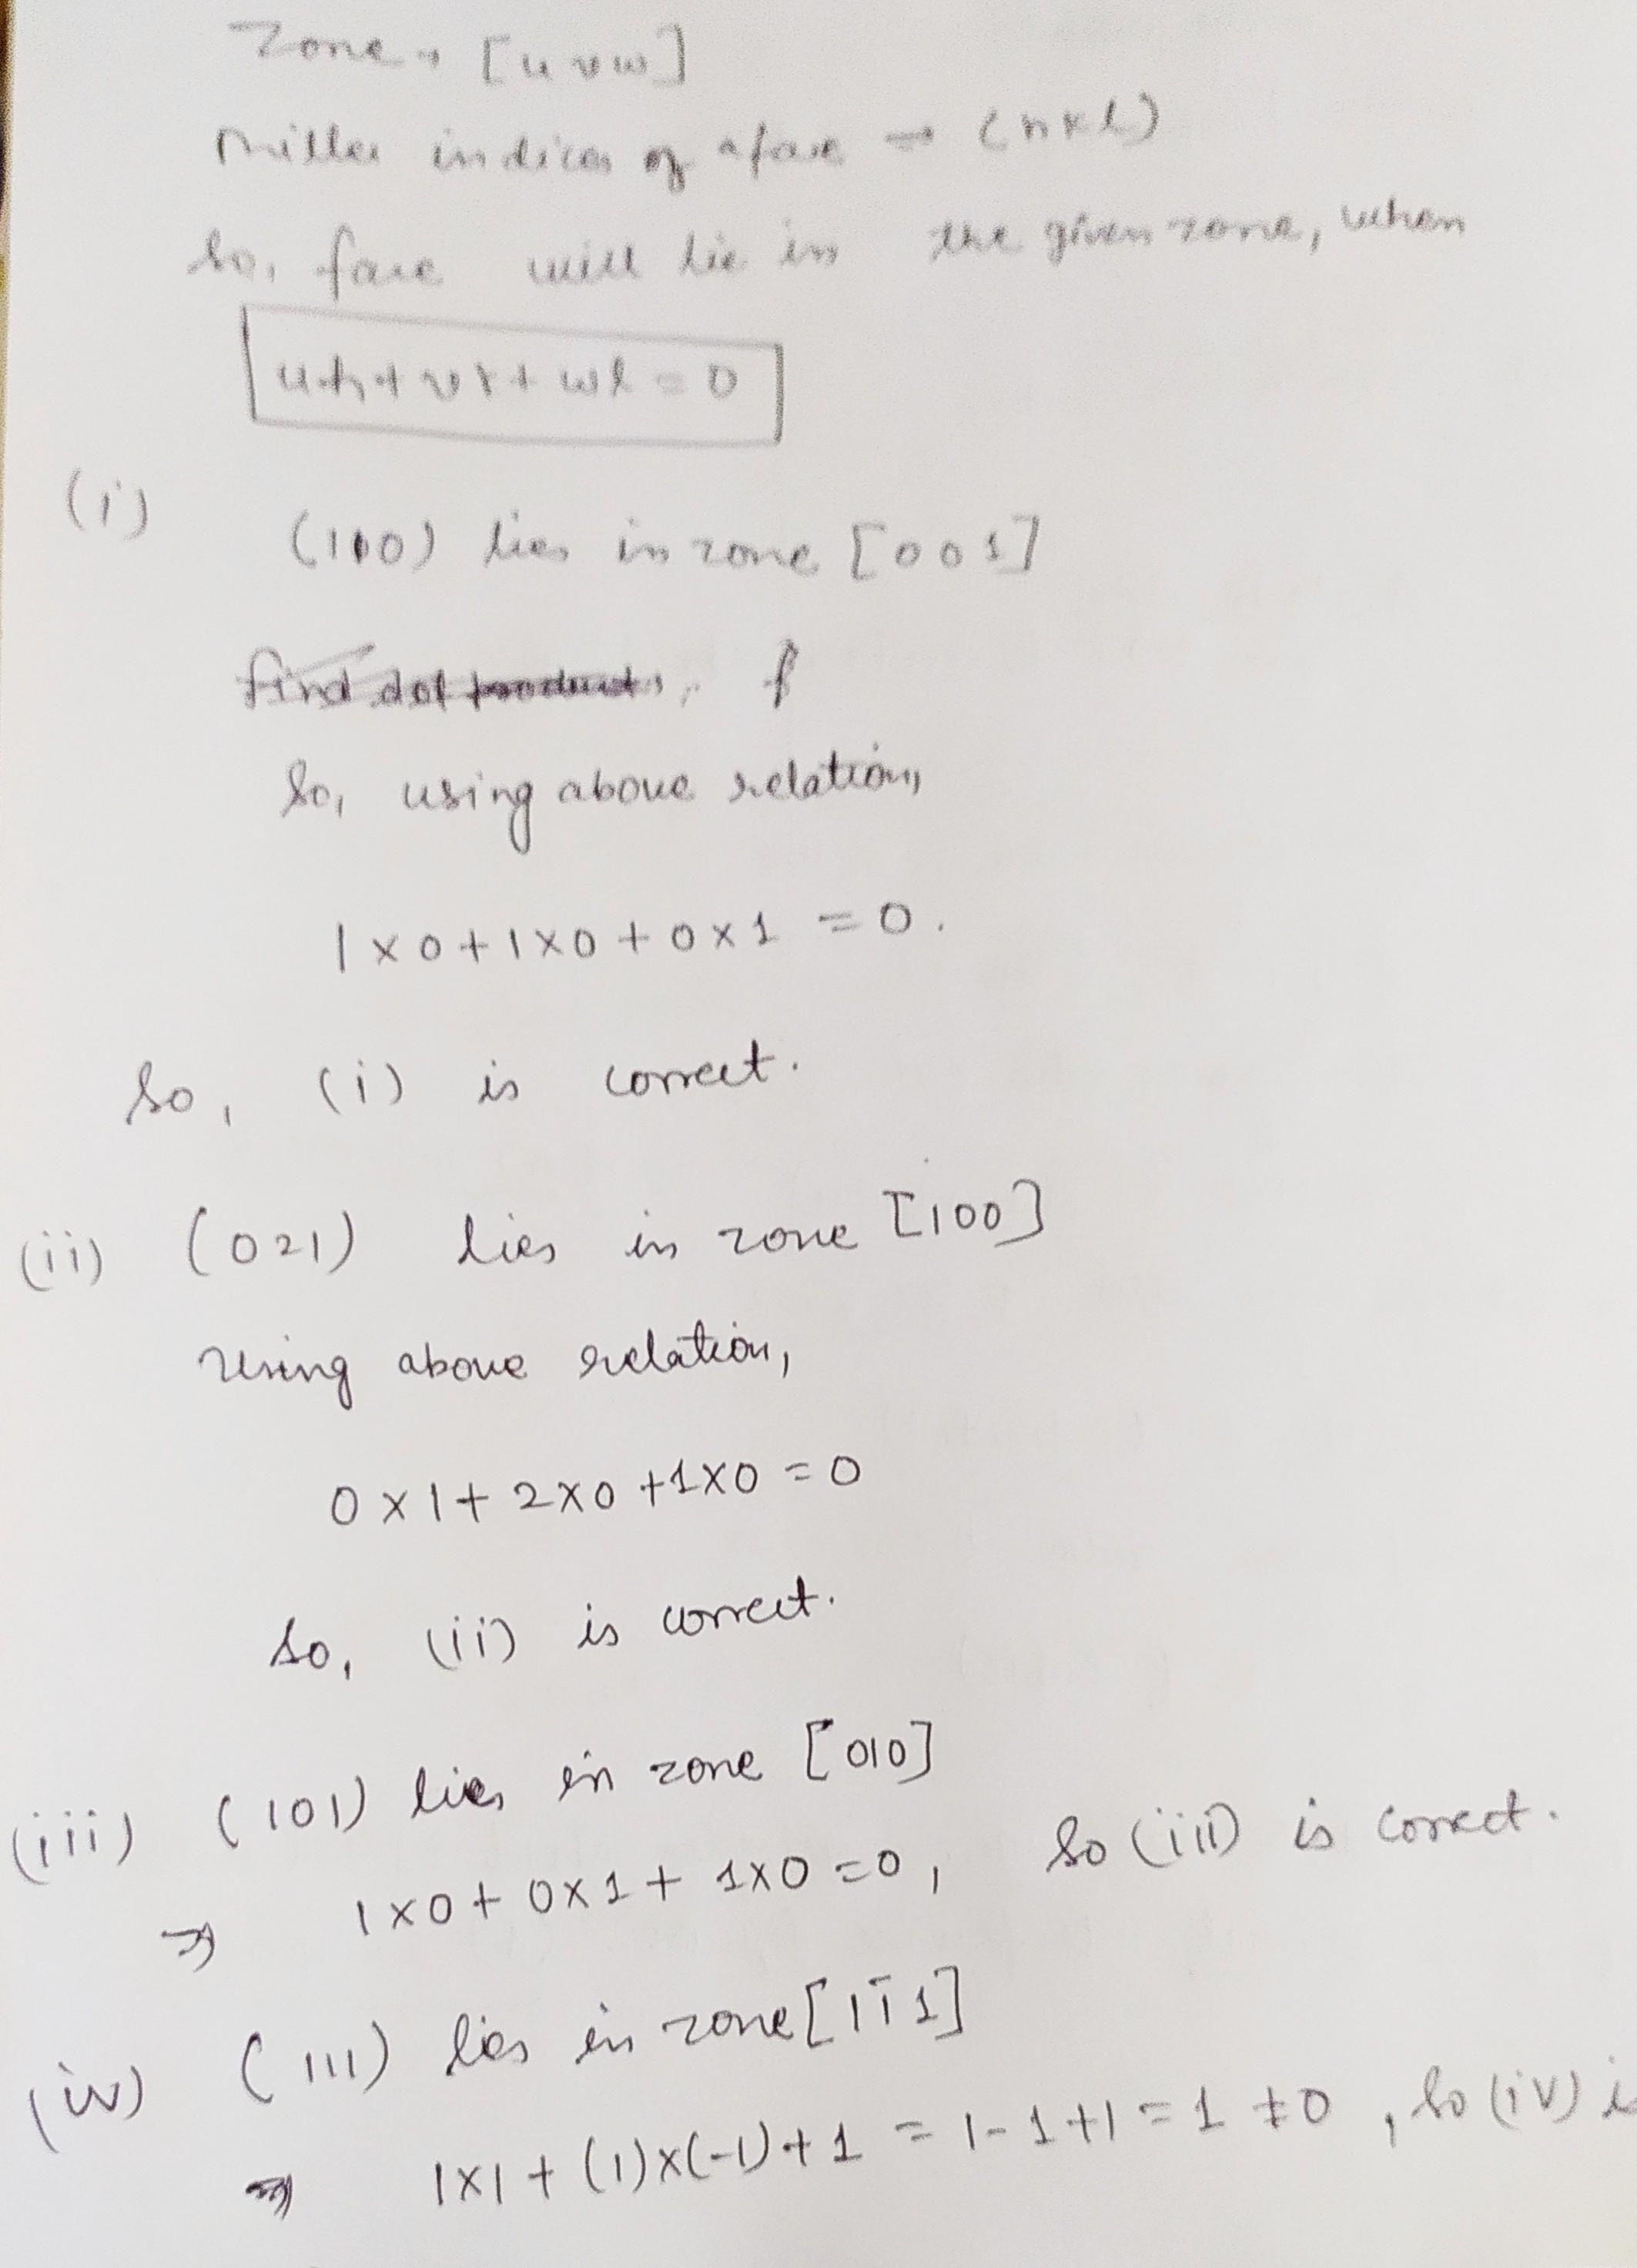 Zone → [u v w]
Miller indices of a face → (h k l)
So, face will lie in the given zone, when
u.h + v k + w l = 0
(i) (110) lies in zone [0 0 1]
find dot products, f
So, using above relation,
1 × 0 + 1 × 0 + 0 × 1 = 0.
So, (i) is correct.
(ii) (0 2 1) lies in zone [1 0 0]
Using above relation,
0 × 1 + 2 × 0 + 1 × 0 = 0
So, (ii) is correct.
(iii) (1 0 1) lies in zone [0 1 0]
⇒ 1 × 0 + 0 × 1 + 1 × 0 = 0, So (iii) is correct.
(iv) (1 1 1) lies in zone [1 1̄ 1]
⇒ 1×1 + (1)×(-1) + 1 = 1 - 1 + 1 = 1 ≠ 0, So (iv) is